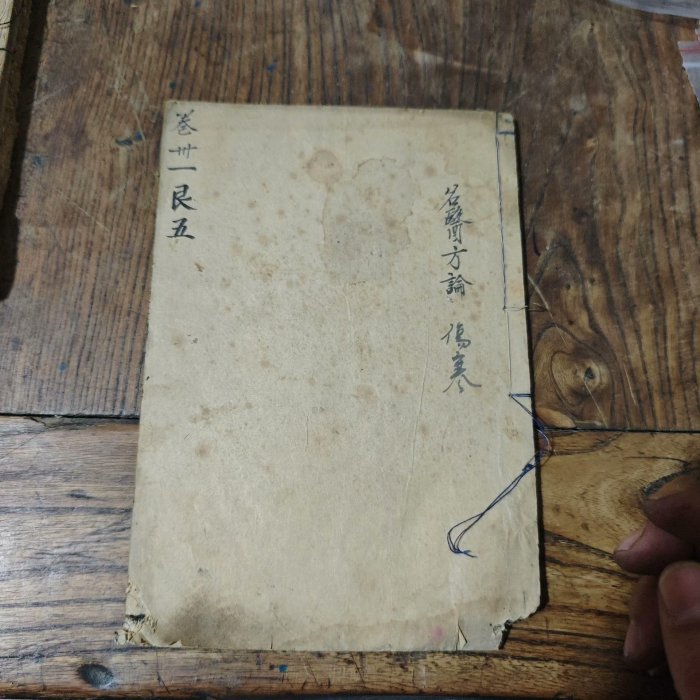 名醫方論 傷寒
卷卅一艮五